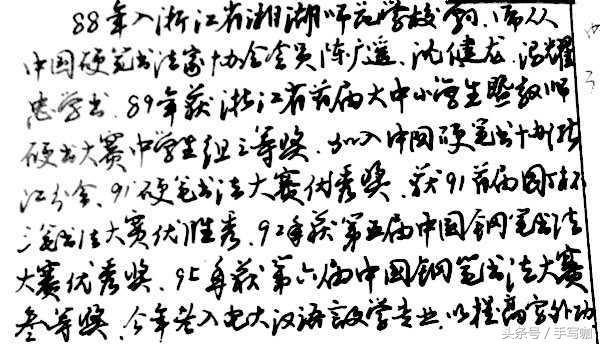 88年入浙江省湘湖师范学校，师从
中国硬笔书法家协会会员陈广遥、沈健龙、冯耀
忠学书．89年获浙江省首届大中小学生暨教师
硬书大赛中学生组三等奖．加入中国硬笔书协浙
江分会．91硬笔书法大赛优秀奖、获91首届国际杯
三笔书法大赛优胜奖．92年获第五届中国钢笔书法
大赛优秀奖．95年获第六届中国钢笔书法大赛
叁等奖．今年考入电大汉语言文学专业．以提高字外功
头条号 / 手写咖